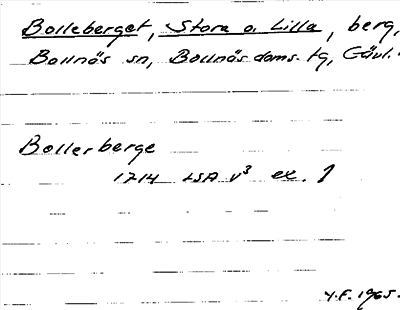 Bolleberget, Stora o. Lilla, berg,
Bollnäs sn, Bollnäs doms. tg, Gävl.
Bollerberge
1714 LSA V3 ex. 1
Y.F. 1965.